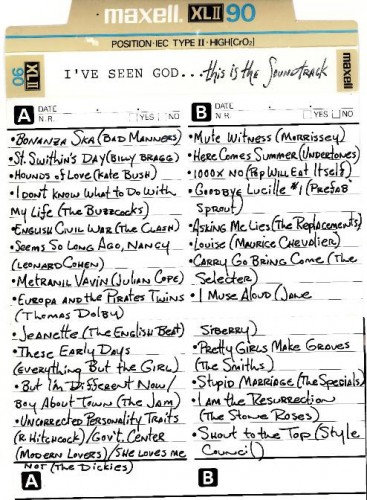 maxell. XLII 90
POSITION·IEC TYPE II·HIGH(CrO₂)
XLII 90
I'VE SEEN GOD... this is the Soundtrack
maxell
A DATE N.R. YES NO
•BONANZA SKA (BAD MANNERS)
•St. Swithin's DAY (BILLY BRAGG)
•HOUNDS OF LOVE (KATE BUSH)
•I DON'T KNOW WHAT TO DO WITH
MY LIFE (THE BUZZCOCKS)
•ENGLISH CIVIL WAR (THE CLASH)
•SEEMS SO LONG AGO, NANCY
(LEONARD COHEN)
•METRANIL VAVIN (JULIAN COPE)
•EUROPA AND THE PIRATES TWINS
(THOMAS DOLBY)
•JEANETTE (THE ENGLISH BEAT)
•THESE EARLY DAYS
(EVERYTHING BUT THE GIRL)
•BUT I'M DIFFERENT NOW/
BOY ABOUT TOWN (THE JAM)
•UNCORRECTED PERSONALITY TRAITS
(R. HITCHCOCK)/GOV'T. CENTER
(MODERN LOVERS)/SHE LOVES ME
NOT (THE DICKIES)
A
B DATE N.R. YES NO
•MUTE WITNESS (MORRISSEY)
•HERE COMES SUMMER (UNDERTONES)
•1000X NO (POP WILL EAT ITSELF)
•GOODBYE LUCILLE #1 (PREFAB
SPROUT)
•ASKING ME LIES (THE REPLACEMENTS)
•LOUISE (MAURICE CHEVALIER)
•CARRY GO BRING COME (THE
SELECTER)
•I MUSE ALOUD (JANE
SIBERRY)
•PRETTY GIRLS MAKE GRAVES
(THE SMITHS)
•STUPID MARRIAGE (THE SPECIALS)
•I AM THE RESURRECTION
(THE STONE ROSES)
•SHOUT TO THE TOP (STYLE
COUNCIL)
B